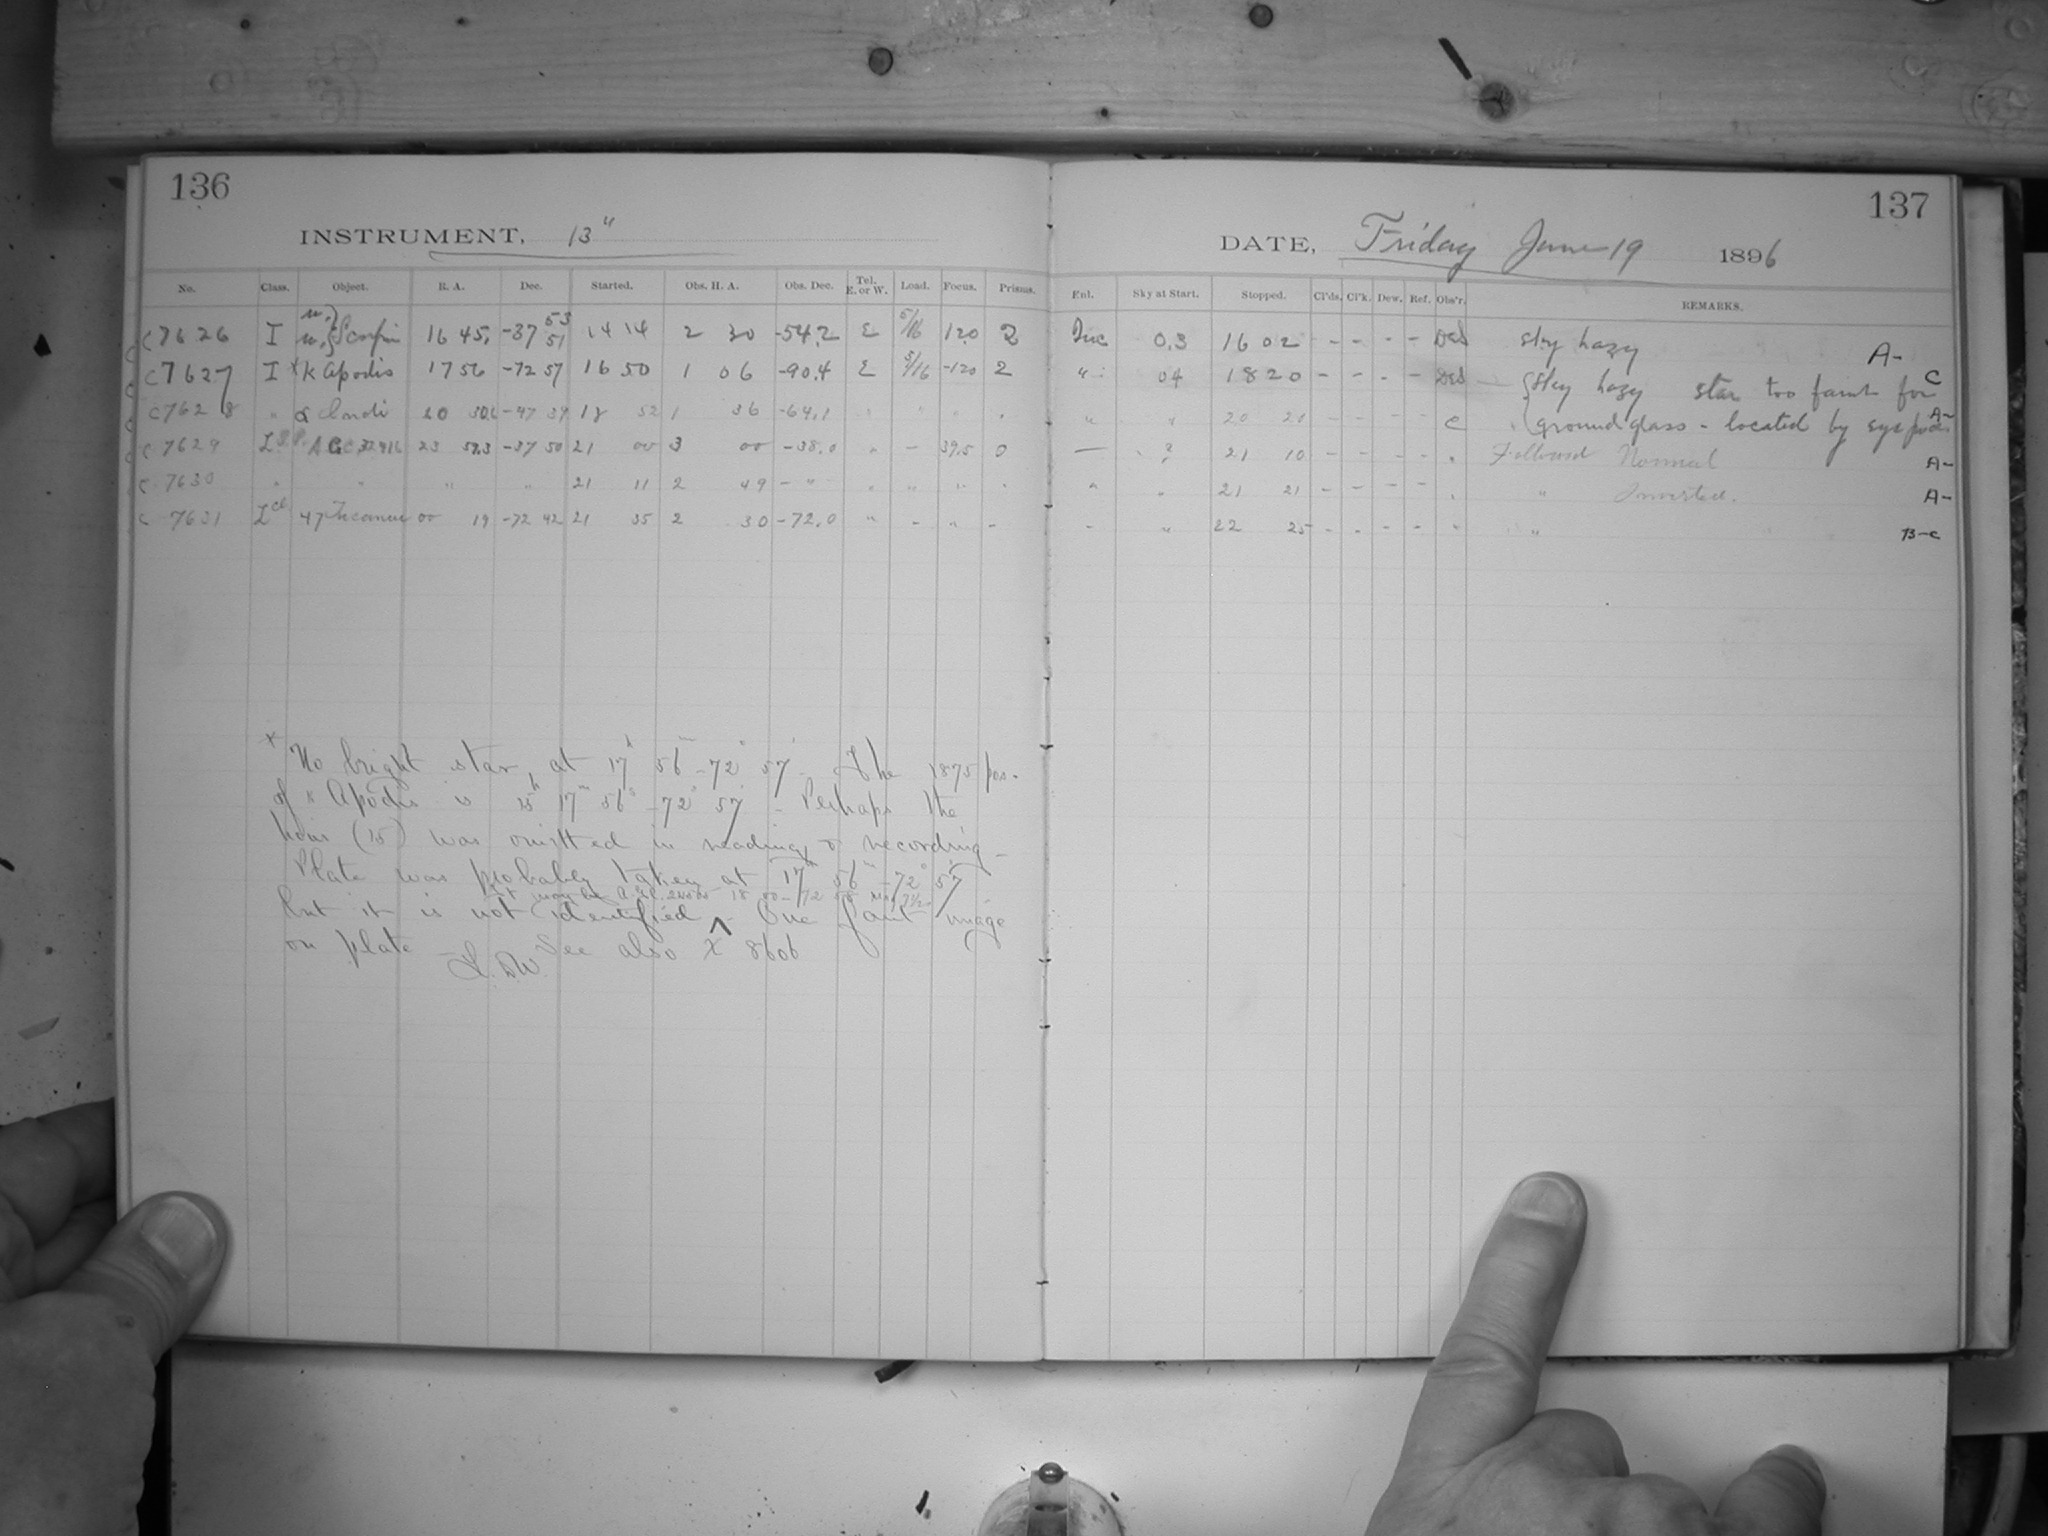 136
137
INSTRUMENT, 13"
DATE, Friday June 19 1896
No. Class. Object. R. A. Dec. Started. Obs. H. A. Obs. Dec. Tel. E. or W. Load. Focus. Prisms. Enl. Sky at Start. Stopped. Cl'ds. Cl'k. Dew. Ref. Obs'r. REMARKS.
c7626 I Scorpii 16 45, -37 53 51 14 14 2 30 -54.2 E 5/16 120 2 0.3 16 02 - - - - sky hazy A-
c7627 I * K Apodis 17 56 -72 57 16 50 1 06 -90.4 E 5/16 -120 2 " 04 18 20 - - - - { Sky hazy star too faint for C
c7628 " α Indi 20 -47 18 52 1 36 -64.1 " " " " " " 20 - - - - C { ground glass - located by A-
c 7629 A.G.C. 32416 23 59.3 -37 50 21 00 3 00 -38.0 " - 39.5 0 — ? 21 10 - - - - " Followed Normal A-
c 7630 " " " " 21 11 2 49 - " - " " " " " " 21 21 - - - - " " Inverted. A-
c 7631 47 Tucanae 00 19 -72 42 21 35 2 30 -72.0 " - " - - " 22 25 - - - - " " B-C
* No bright star at 17h 56m -72° 57' - The 1875 pos.
of K Apodis is 15h 17m 56s -72° 57' - Perhaps the
hour (15) was omitted in reading & recording -
Plate was probably taken at 17h 56m -72° 57'
It may be A.G.C.
but it is not identified ^ - One faint image
on plate - See also X 8606
L. D. W.